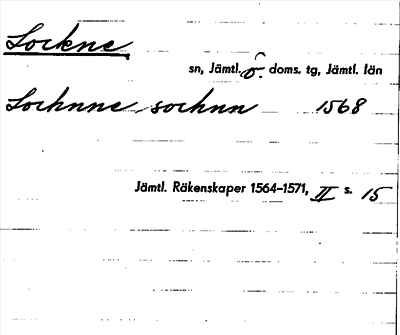 Lockne
sn, Jämtl. ö. doms. tg, Jämtl. län
Lochnne sochnn 1568
Jämtl. Räkenskaper 1564-1571, II s. 15